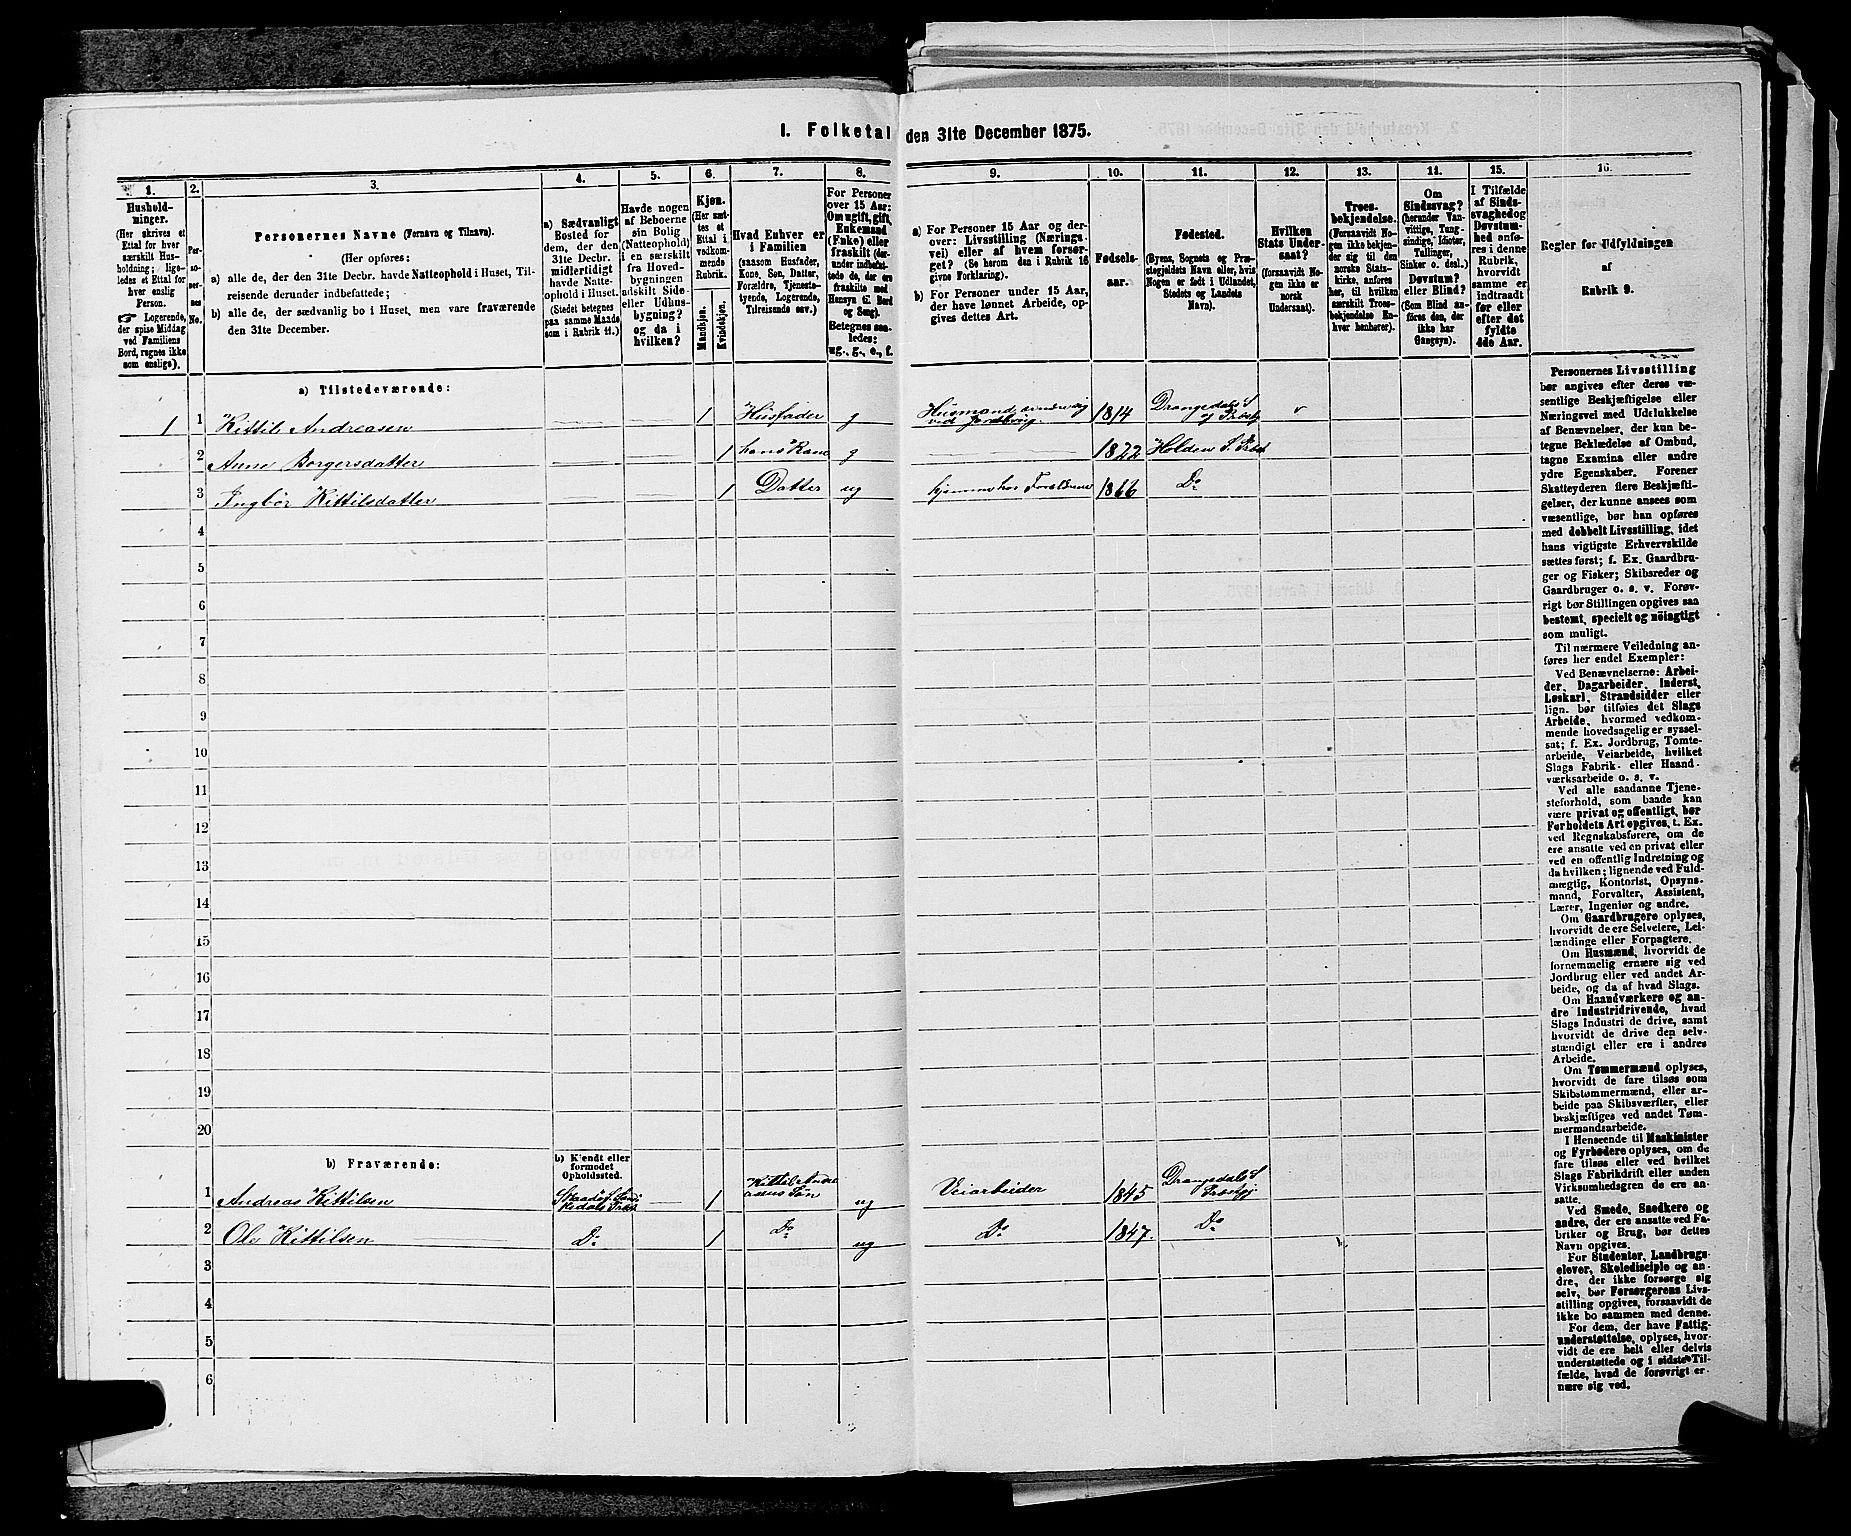 I. Folketal den 31te December 1875.
1. 2. 3. 4. 5. 6. 7. 8. 9. 10. 11. 12. 13. 14. 15. 16.
Hushold-
ninger.
(Her skrives et
Ettal for hver
særskilt Hus-
holdning; lige-
ledes et Ettal for
hver enslig
Person.
☞ Logerende,
der spise Middag
ved Familiens
Bord, regnes ikke
som enslige).
Per-
so-
ner-
nes
No.
Personernes Navne (Fornavn og Tilnavn).
(Her opføres:
a) alle de, der den 31te Decbr. havde Natteophold i Huset, Til-
reisende derunder indbefattede;
b) alle de, der sædvanlig bo i Huset, men vare fraværende
den 31te December.
a) Sædvanligt
Bosted for
dem, der den
31te Decbr.
midlertidigt
havde Natte-
ophold i Huset.
(Stedet betegnes
paa samme Maade
som i Rubrik 11.)
Havde nogen
af Beboerne
sin Bolig
(Natteophold)
i en særskilt
fra Hoved-
bygningen
adskilt Side-
eller Udhus-
bygning?
og da i
hvilken?
Kjøn.
(Her sæt-
tes et
Ettal i
vedkom-
mende
Rubrik.
Mandkjøn.
Kvindekjøn.
Hvad Enhver er
i Familien
(saasom Husfader,
Kone, Søn, Datter,
Forældre, Tjeneste-
tyende, Logerende,
Tilreisende osv.)
For Personer
over 15 Aar:
Om ugift, gift,
Enkemand
(Enke) eller
fraskilt (der-
under indbefat-
tede de, der ere
fraskilte med
Hensyn til Bord
og Seng).
Betegnes saa-
ledes:
ug., g., e., f.
a) For Personer 15 Aar og der-
over: Livsstilling (Nærings-
vei) eller af hvem forsør-
get? (Se herom den i Rubrik 16
givne Forklaring).
b) For Personer under 15 Aar,
der have lønnet Arbeide, op-
gives dettes Art.
Fødsels-
aar.
Fødested.
(Byens, Sognets og Præ-
stegjeldets Navn eller, hvis
Nogen er født i Udlandet,
Stedets og Landets
Navn).
Hvilken
Stats Under-
saat?
(forsaavidt No-
gen ikke er
norsk
Undersaat).
Troes-
bekjendelse.
(Forsaavidt No-
gen ikke bekjen-
der sig til den
norske Stats-
kirke, anføres
her, til hvilken
særskilt Troes-
bekjendelse En-
hver henhører).
Om
Sindssvag?
(herunder Van-
vittige, Tung-
sindige, Idioter,
Tullinger,
Sinker o. desl.)
Døvstum?
eller Blind?
(Som Blind an-
føres den, der
ikke har
Gangsyn).
I Tilfælde
af Sinds-
svaghed og
Døvstum-
hed anfø-
res i denne
Rubrik,
hvorvidt
samme er
indtraadt
før eller
efter det
fyldte
4de Aar.
Regler for Udfyldningen
af
Rubrik 9.
a) Tilstedeværende:
1 1 Kittil Andreasen 1 Husfader g Husmand 1814 Drangedals S og Præstgj v
2 Anne Borgersdatter 1 hans Kone g 1822 Holden S.
3 Ingbør Kittilsdatter 1 Datter ug hjemme hos Forældrene 1866 Do
4
5
6
7
8
9
10
11
12
13
14
15
16
17
18
19
20
b) Fraværende:
b) Kjendt eller
formodet
Opholdssted.
1 Andreas Kittilsen 1 Kittil Andre
asens Søn ug Veiarbeider 1845 Drangedals S
Præstgj
2 Ole Kittilsen Do 1 Do ug Do 1847. Do
3
4
5
6
Personernes Livsstilling
bør angives efter deres væ-
sentlige Beskjæftigelse eller
Næringsvei med Udelukkelse
af Benævnelser, der kun be-
tegne Beklædelse af Ombud,
tagne Examina eller andre
ydre Egenskaber. Forener
Skatteyderen flere Beskjæfti-
gelser, der kunne ansees som
væsentlige, bør han opføres
med dobbelt Livsstilling, idet
hans vigtigste Erhvervskilde
sættes først; f. Ex. Gaardbru-
ger og Fisker; Skibsreder og
Gaardbruger o. s. v. Forøv-
rigt bør Stillingen opgives saa
bestemt, specielt og nöiagtigt
som muligt.
Til nærmere Veiledning an-
føres her endel Exempler:
Ved Benævnelserne: Arbei-
der, Dagarbeider, Inderst,
Løskarl, Strandsidder eller
lign. bør tilføies det Slags
Arbeide, hvormed vedkom-
mende hovedsagelig er syssel-
sat; f. Ex. Jordbrug, Tomte-
arbeide, Veiarbeide, hvilket
Slags Fabrik- eller Haand-
værksarbeide o. s. v.
Ved alle saadanne Tjene-
steforhold, som baade kan
være privat og offentligt, bør
Forholdets Art opgives, t. Ex.
ved Regnskabsførere, om de
ere ansatte ved en privat eller
ved en offentlig Indretning og
da hvilken; lignende ved Fuld-
mægtig, Kontorist, Opsyns-
mand, Forvalter, Assistent,
Lærer, Ingeniør og andre.
Om Gaardbrugere oplyses,
hvorvidt de ere Selveiere, Lei-
lændinge eller Forpagtere.
Om Husmænd, hvorvidt de
fornemmelig ernære sig ved
Jordbrug eller ved andet Ar-
beide, og da af hvad Slags.
Om Haandværkere og an-
dre Industridrivende, hvad
Slags Industri de drive, samt
hvorvidt de drive den selv-
stændigt eller ere i andres
Arbeide.
Om Tømmermænd oplyses,
hvorvidt de fare tilsøs som
Skibstømmermænd, eller ar-
beide paa Skibsværfter, eller
beskjæftiges ved andet Tøm-
mermandsarbeide.
I Henseende til Maskinister
og Fyrbødere oplyses, om de
fare tilsøs eller ved hvilket
Slags Fabrikdrift eller anden
Virksomhedsgren de ere an-
satte.
Ved Smede, Snedkere og
andre, der ere ansatte ved Fa-
briker og Brug, bør dettes
Navn opgives.
For Studenter, Landbrugs-
elever, Skoledisciple og an-
dre, der ikke forsørge sig
selv, bør Forsørgerens Livs-
stilling opgives, forsaavidt de
ikke bo sammen med denne.
For dem, der have Fattig-
understøttelse, oplyses, hvor-
vidt de ere helt eller delvis
understøttede og i sidste Til-
fælde, hvad de forøvrigt er-
nære sig ved.